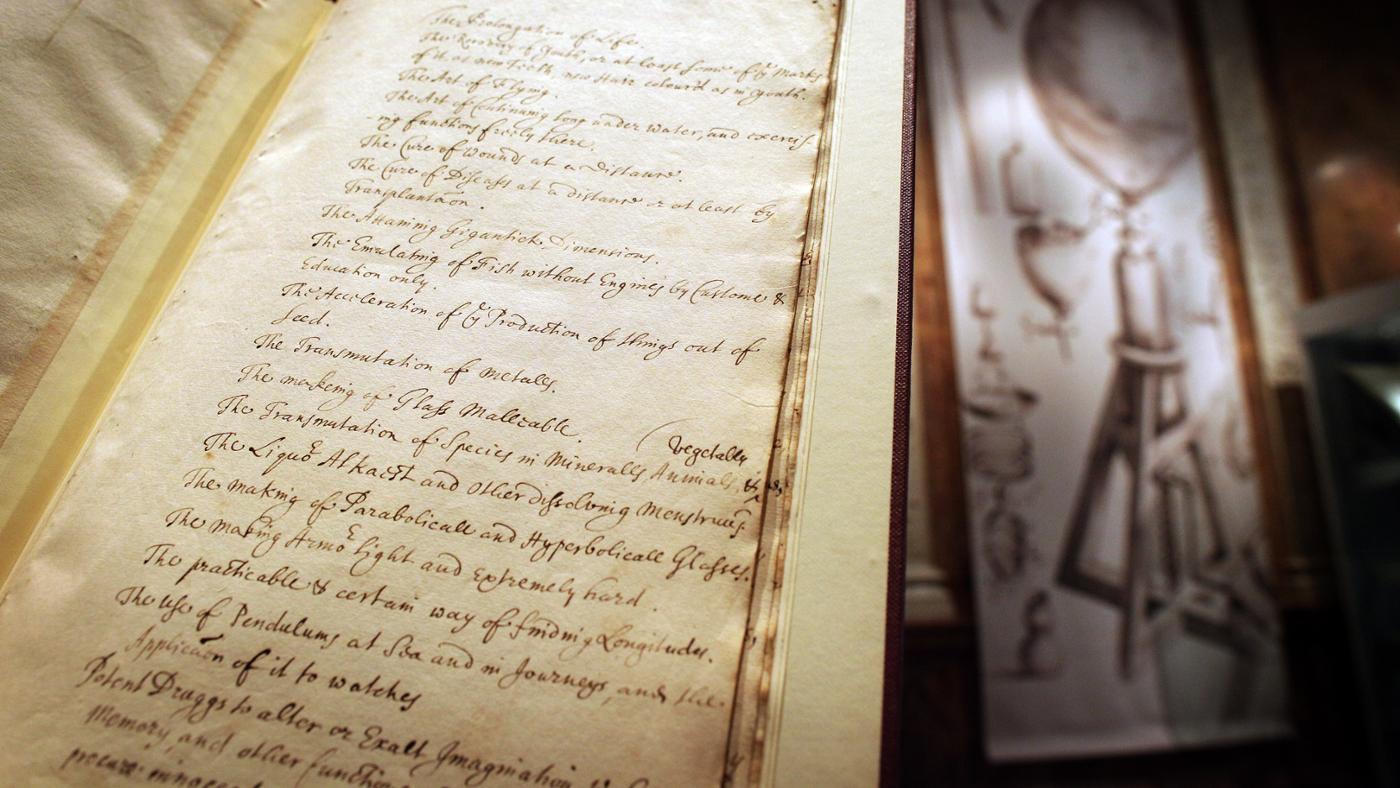 The Prolongation of Life.
The Recovery of Youth, or at least some of yᵉ Marks
of it, as new Teeth, new Hair colour'd as in youth.
The Art of Flying.
The Art of Continuing long under water, and exercis-
-ing functions freely there.
The Cure of Wounds at a Distance.
The Cure of Diseases at a distance or at least by
Transplantation.
The Attaining Gigantick Dimensions.
The Emulating of Fish without Engines by Custome &
Education only.
The Acceleration of yᵉ Production of things out of
Seed.
The Transmutation of Metalls.
The makeing of Glass Malleable.
(Vegetalls
The Transmutation of Species in Mineralls Animals, &
The Liquoʳ Alkaest and Other dissolving Menstruums.
The making of Parabolicall and Hyperbolicall Glasses.
The making Armoʳ light and Extremely hard.
The practicable & certain way of finding Longitudes.
The use of Pendulums at Sea and in Journeys, and the
Application of it to watches
Potent Druggs to alter or Exalt Imagination
Memory, and other functions
procure innocent